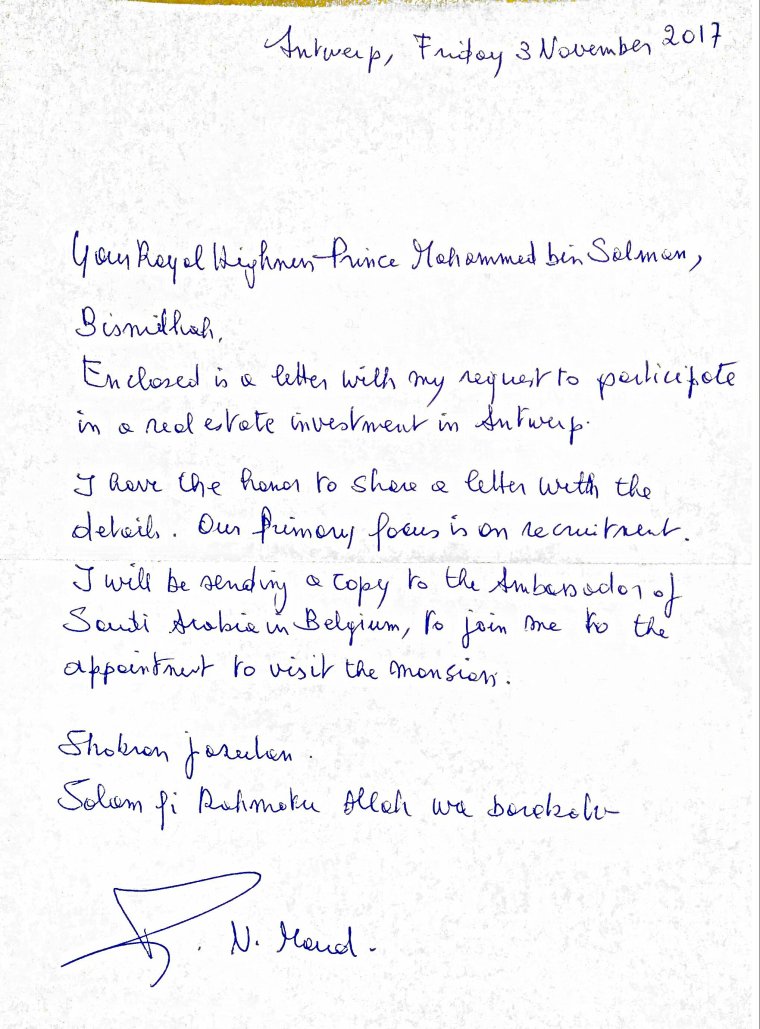 Antwerp, Friday 3 November 2017
Your Royal Highness Prince Mohammed bin Salman,
Bismillah,
Enclosed is a letter with my request to participate
in a real estate investment in Antwerp.
I have the honor to share a letter with the
details. Our primary focus is on recruitment.
I will be sending a copy to the Ambassador of
Saudi Arabia in Belgium, to join me to the
appointment to visit the mansion.
Shokran jazeelan.
Salam fi Rahmatu Allah wa barakatu
N.